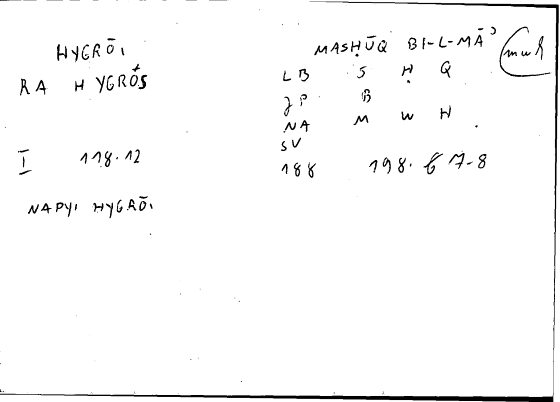 HYGRŌI
RA HYGRÓS
I 118.12
NAPYI HYGRŌI
MASḤŪQ BI-L-MĀʾ mwh
LB S Ḥ Q
JP B
NA M W H .
SV
188 198. 7-8